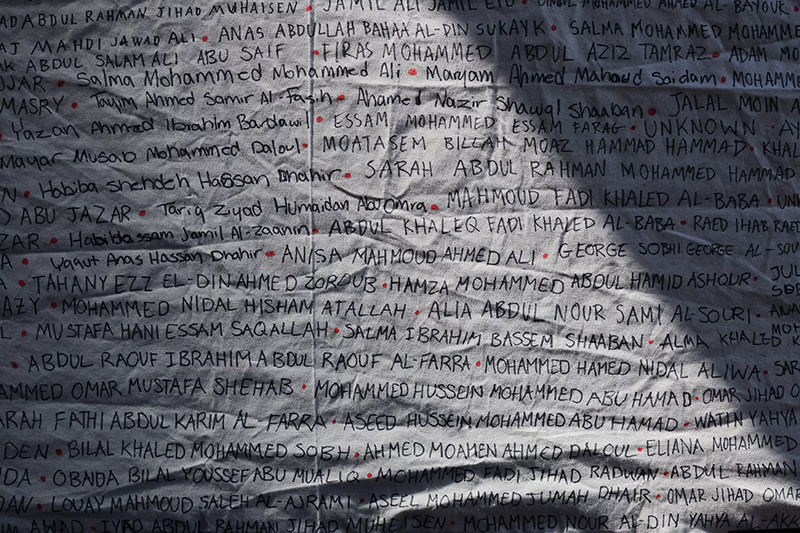 ABDUL RAHMAN JIHAD MUHAISEN • JAMIL ALI JAMIL EID • MOHAMMED AHMED AL-BAYOUK •
AJ MAHDI JAWAD ALI • ANAS ABDULLAH BAHAA AL-DIN SUKAYK • SALMA MOHAMMED MOHAMME
AK ABDUL SALAM ALI ABU SAIF • FIRAS MOHAMMED ABDUL AZIZ TAMRAZ • ADAM MO
JJAR • Salma Mohammed Mohammed Ali • Maryam Ahmed Mahoud Saidam • MOHAMME
MASRY • Tayim Ahmed Samir Al-Fasih • Ahamed Nazir Shawql Shaaban • JALAL MOIN A
• Yazan Ahmed Ibrahim Bardawil • ESSAM MOHAMMED ESSAM FARAG • UNKNOWN • AY
Mayar Musab Mohammed Daloul • MOATASEM BILLAH MOAZ HAMMAD HAMMAD • KHAL
N • Habiba Shehdeh Hassan Dhahir • SARAH ABDUL RAHMAN MOHAMMED HAMMAD
D ABU JAZAR • Tariq Ziyad Humaidan Abu Omra • MAHMOUD FADI KHALED AL-BABA • UN
ZAR • Habiba Essam Jamil Al-zaanin • ABDUL KHALEQ FADI KHALED AL-BABA • RAED IHAB RAE
A • Yaqut Anas Hassan Dhahir • ANISA MAHMOUD AHMED ALI • GEORGE SOBHI GEORGE AL-SOU
A • TAHANY EZZ EL-DIN AHMED ZOROUB • HAMZA MOHAMMED ABDUL HAMID ASHOUR • JUL
AZY • MOHAMMED NIDAL HISHAM ATALLAH • ALIA ABDUL NOUR SAMI AL-SOURI • ANA
L • MUSTAFA HANI ESSAM SAQALLAH • SALMA IBRAHIM BASSEM SHAABAN • ALMA KHALED K
• ABDUL RAOUF IBRAHIM ABDUL RAOUF AL-FARRA • MOHAMMED HAMED NIDAL ALIWA • SAR
AMMED OMAR MUSTAFA SHEHAB • MOHAMMED HUSSEIN MOHAMMED ABU HAMAD • OMAR JIHAD O
ARAH FATHI ABDUL KARIM AL-FARRA • ASEED HUSSEIN MOHAMMED ABU HAMAD • WATIN YAHYA
DEN • BILAL KHALED MOHAMMED SOBH • AHMED MOAMEN AHMED DALOUL • ELIANA MOHAMMED
DA • OBAIDA BILAL YOUSSEF ABU MUALIQ • MOHAMMED FADI JIHAD RADWAN • ABDUL RAHMAN
DAN • LOUAY MAHMOUD SALEH AL-AJRAMI • ASEEL MOHAMMED JUMAH DHAIR • OMAR JIHAD OMAR
IM AWAD • IYAD ABDUL RAHMAN JIHAD MUHEISEN • MOHAMMED NOUR AL-DIN YAHYA AL-AKK